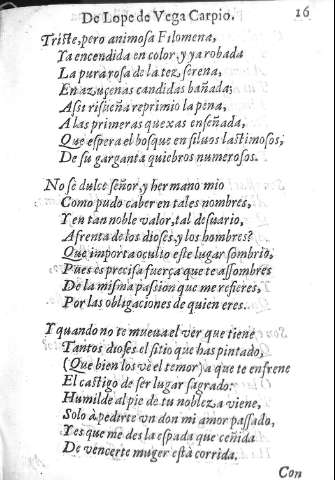 De Lope de Vega Carpio. 16
Triste, pero animosa Filomena,
Ya encendida en color, y ya robada
La pura rosa de la tez serena,
En açuçenas candidas bañada;
Assi risueña reprimio la pena,
A las primeras quexas enseñada,
Que espera el bosque en siluos lastimosos,
De su garganta quiebros numerosos.
No se dulce señor, y hermano mio
Como pudo caber en tales nombres,
Y en tan noble valor, tal desuario,
Afrenta de los dioses, y los hombres?
Que importa oculto este lugar sombrio,
Pues es precisa fuerça que te assombres
De la misma passion que me refieres,
Por las obligaciones de quien eres.
Y quando no te mueua el ver que tiene
Tantos dioses el sitio que has pintado,
(Que bien los vè el temor) a que te enfrene
El castigo de ser lugar sagrado:
Humilde al pie de tu nobleza viene,
Solo à pedirte vn don mi amor passado,
Y es que me des la espada que ceñida
De vencerte muger està corrida.
Con